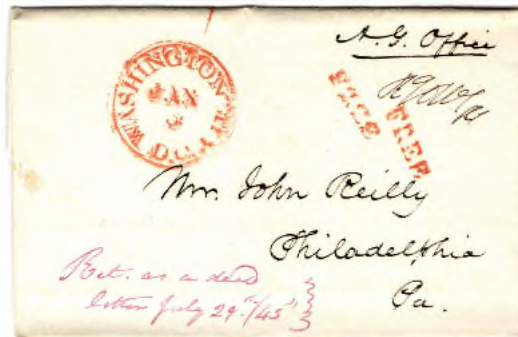 A. G. Office
WASHINGTON CITY
JAN
D.C.
FREE
FREE
Mr. John Reilly
Philadelphia
Pa.
Ret. as a dead
letter July 29th/45